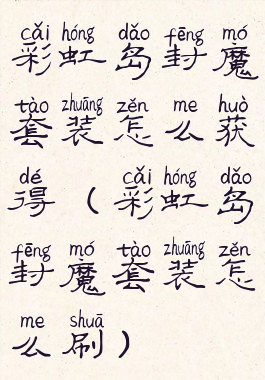 cǎi hóng dǎo fēng mó
彩虹岛封魔
tào zhuāng zěn me huò
套装怎么获
dé ( cǎi hóng dǎo
得(彩虹岛
fēng mó tào zhuāng zěn
封魔套装怎
me shuā
么刷)